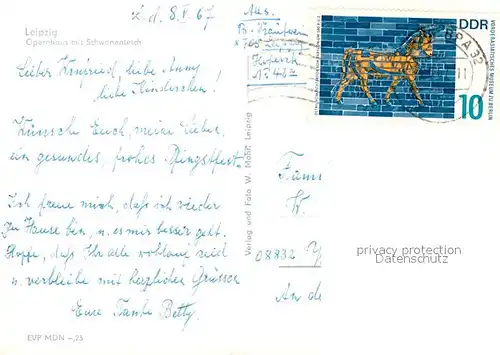 L. d. 8. V. 67
Leipzig
Opernhaus mit Schwanenteich
Lieber Winfried, liebe Anny
liebe Kinderchen!
Wünsche Euch, meine Lieben,
ein gesundes, frohes Pfingstfest.
Ich freue mich, daß ich wieder
zu Hause bin, u. es mir besser geht.
Hoffe, daß Ihr alle wohlauf seid
u. verbleibe mit herzlichen Grüssen
Eure Tante Betty.
EVP MDN –,25
Verlag und Foto W. Mohr Leipzig
Abs.
B.
x 705
Nr. 48
DDR
VORDERASIATISCHES MUSEUM ZU BERLIN
10
32
Fami
W.
08832
An de
privacy protection
Datenschutz